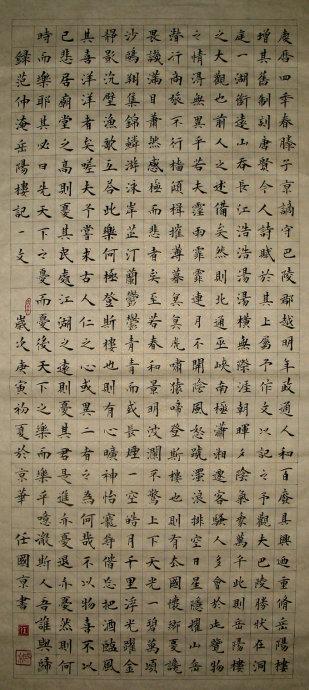 慶曆四年春滕子京謫守巴陵郡越明年政通人和百廢具興迺重脩岳陽樓
增其舊制刻唐賢今人詩賦於其上屬予作文以記之予觀夫巴陵勝狀在洞
庭一湖銜遠山吞長江浩浩湯湯橫無際涯朝暉夕陰氣象萬千此則岳陽樓
之大觀也前人之述備矣然則北通巫峽南極瀟湘遷客騷人多會於此覽物
之情得無異乎若夫霪雨霏霏連月不開陰風怒號濁浪排空日星隱耀山岳
潛行商旅不行檣傾楫摧薄暮冥冥虎嘯猿啼登斯樓也則有去國懷鄉憂讒
畏譏滿目蕭然感極而悲者矣至若春和景明波瀾不驚上下天光一碧萬頃
沙鷗翔集錦鱗游泳岸芷汀蘭鬱鬱青青而或長煙一空皓月千里浮光躍金
靜影沉璧漁歌互答此樂何極登斯樓也則有心曠神怡寵辱偕忘把酒臨風
其喜洋洋者矣嗟夫予嘗求古人仁之心或異二者之為何哉不以物喜不以
己悲居廟堂之高則憂其民處江湖之遠則憂其君是進亦憂退亦憂然則何
時而樂耶其必曰先天下之憂而憂後天下之樂而樂乎噫微斯人吾誰與歸
錄范仲淹岳陽樓記一文 歲次庚寅初夏於京華 任國京書